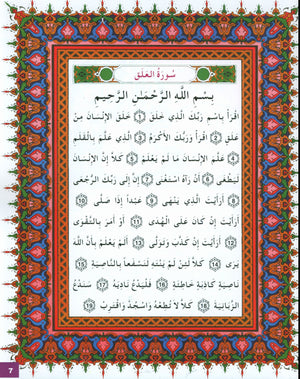 سُورَةُ العَلَق
بِسْمِ اللَّهِ الرَّحْمَـٰنِ الرَّحِيمِ
اقْرَأْ بِاسْمِ رَبِّكَ الَّذِي خَلَقَ ① خَلَقَ الإِنْسَانَ مِنْ
عَلَقٍ ② اقْرَأْ وَرَبُّكَ الأَكْرَمُ ③ الَّذِي عَلَّمَ بِالْقَلَمِ
④ عَلَّمَ الإِنْسَانَ مَا لَمْ يَعْلَمْ ⑤ كَلاَّ إِنَّ الإِنْسَانَ
لَيَطْغَى ⑥ أَنْ رَآهُ اسْتَغْنَى ⑦ إِنَّ إِلَى رَبِّكَ الرُّجْعَى
⑧ أَرَأَيْتَ الَّذِي يَنْهَى ⑨ عَبْدًا إِذَا صَلَّى ⑩
أَرَأَيْتَ إِنْ كَانَ عَلَى الْهُدَى ⑪ أَوْ أَمَرَ بِالتَّقْوَى
⑫ أَرَأَيْتَ إِنْ كَذَّبَ وَتَوَلَّى ⑬ أَلَمْ يَعْلَمْ بِأَنَّ اللَّهَ
يَرَى ⑭ كَلاَّ لَئِنْ لَمْ يَنْتَهِ لَنَسْفَعاً بِالنَّاصِيَةِ ⑮
نَاصِيَةٍ كَاذِبَةٍ خَاطِئَةٍ ⑯ فَلْيَدْعُ نَادِيَهُ ⑰ سَنَدْعُ
الزَّبَانِيَةَ ⑱ كَلاَّ لا تُطِعْهُ وَاسْجُدْ وَاقْتَرِبْ ⑲
7